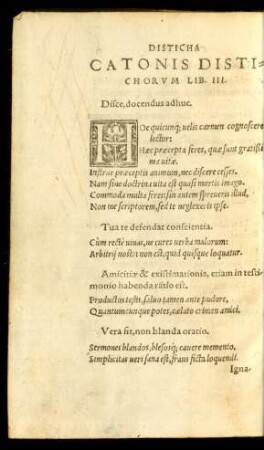 DISTICHA
CATONIS DISTI-
CHORVM LIB. III.
Disce, docendus adhuc.
HOc quicunq; uelis carmen cognoscere
lector:
Hæc præcepta feres, quæ sunt gratissi
ma uitæ.
Instrue præceptis animum, nec discere cesses,
Nam sine doctrina uita est quasi mortis imago.
Commoda multa feres: sin autem spreueris illud,
Non me scriptorem, sed te neglexeris ipse.
Tua te defendat conscientia.
Cùm rectè uiuas, ne cures uerba malorum:
Arbitrij nostri non est, quid quisque loquatur.
Amicitiæ & existimationis, etiam in testi-
monio habenda ratio est.
Productus testis, saluo tamen ante pudore,
Quantumcunque potes, cælato crimen amici.
Vera sit, non blanda oratio.
Sermones blandos, blæsosq; cauere memento.
Simplicitas ueri sana est, fraus ficta loquendi.
Igna-